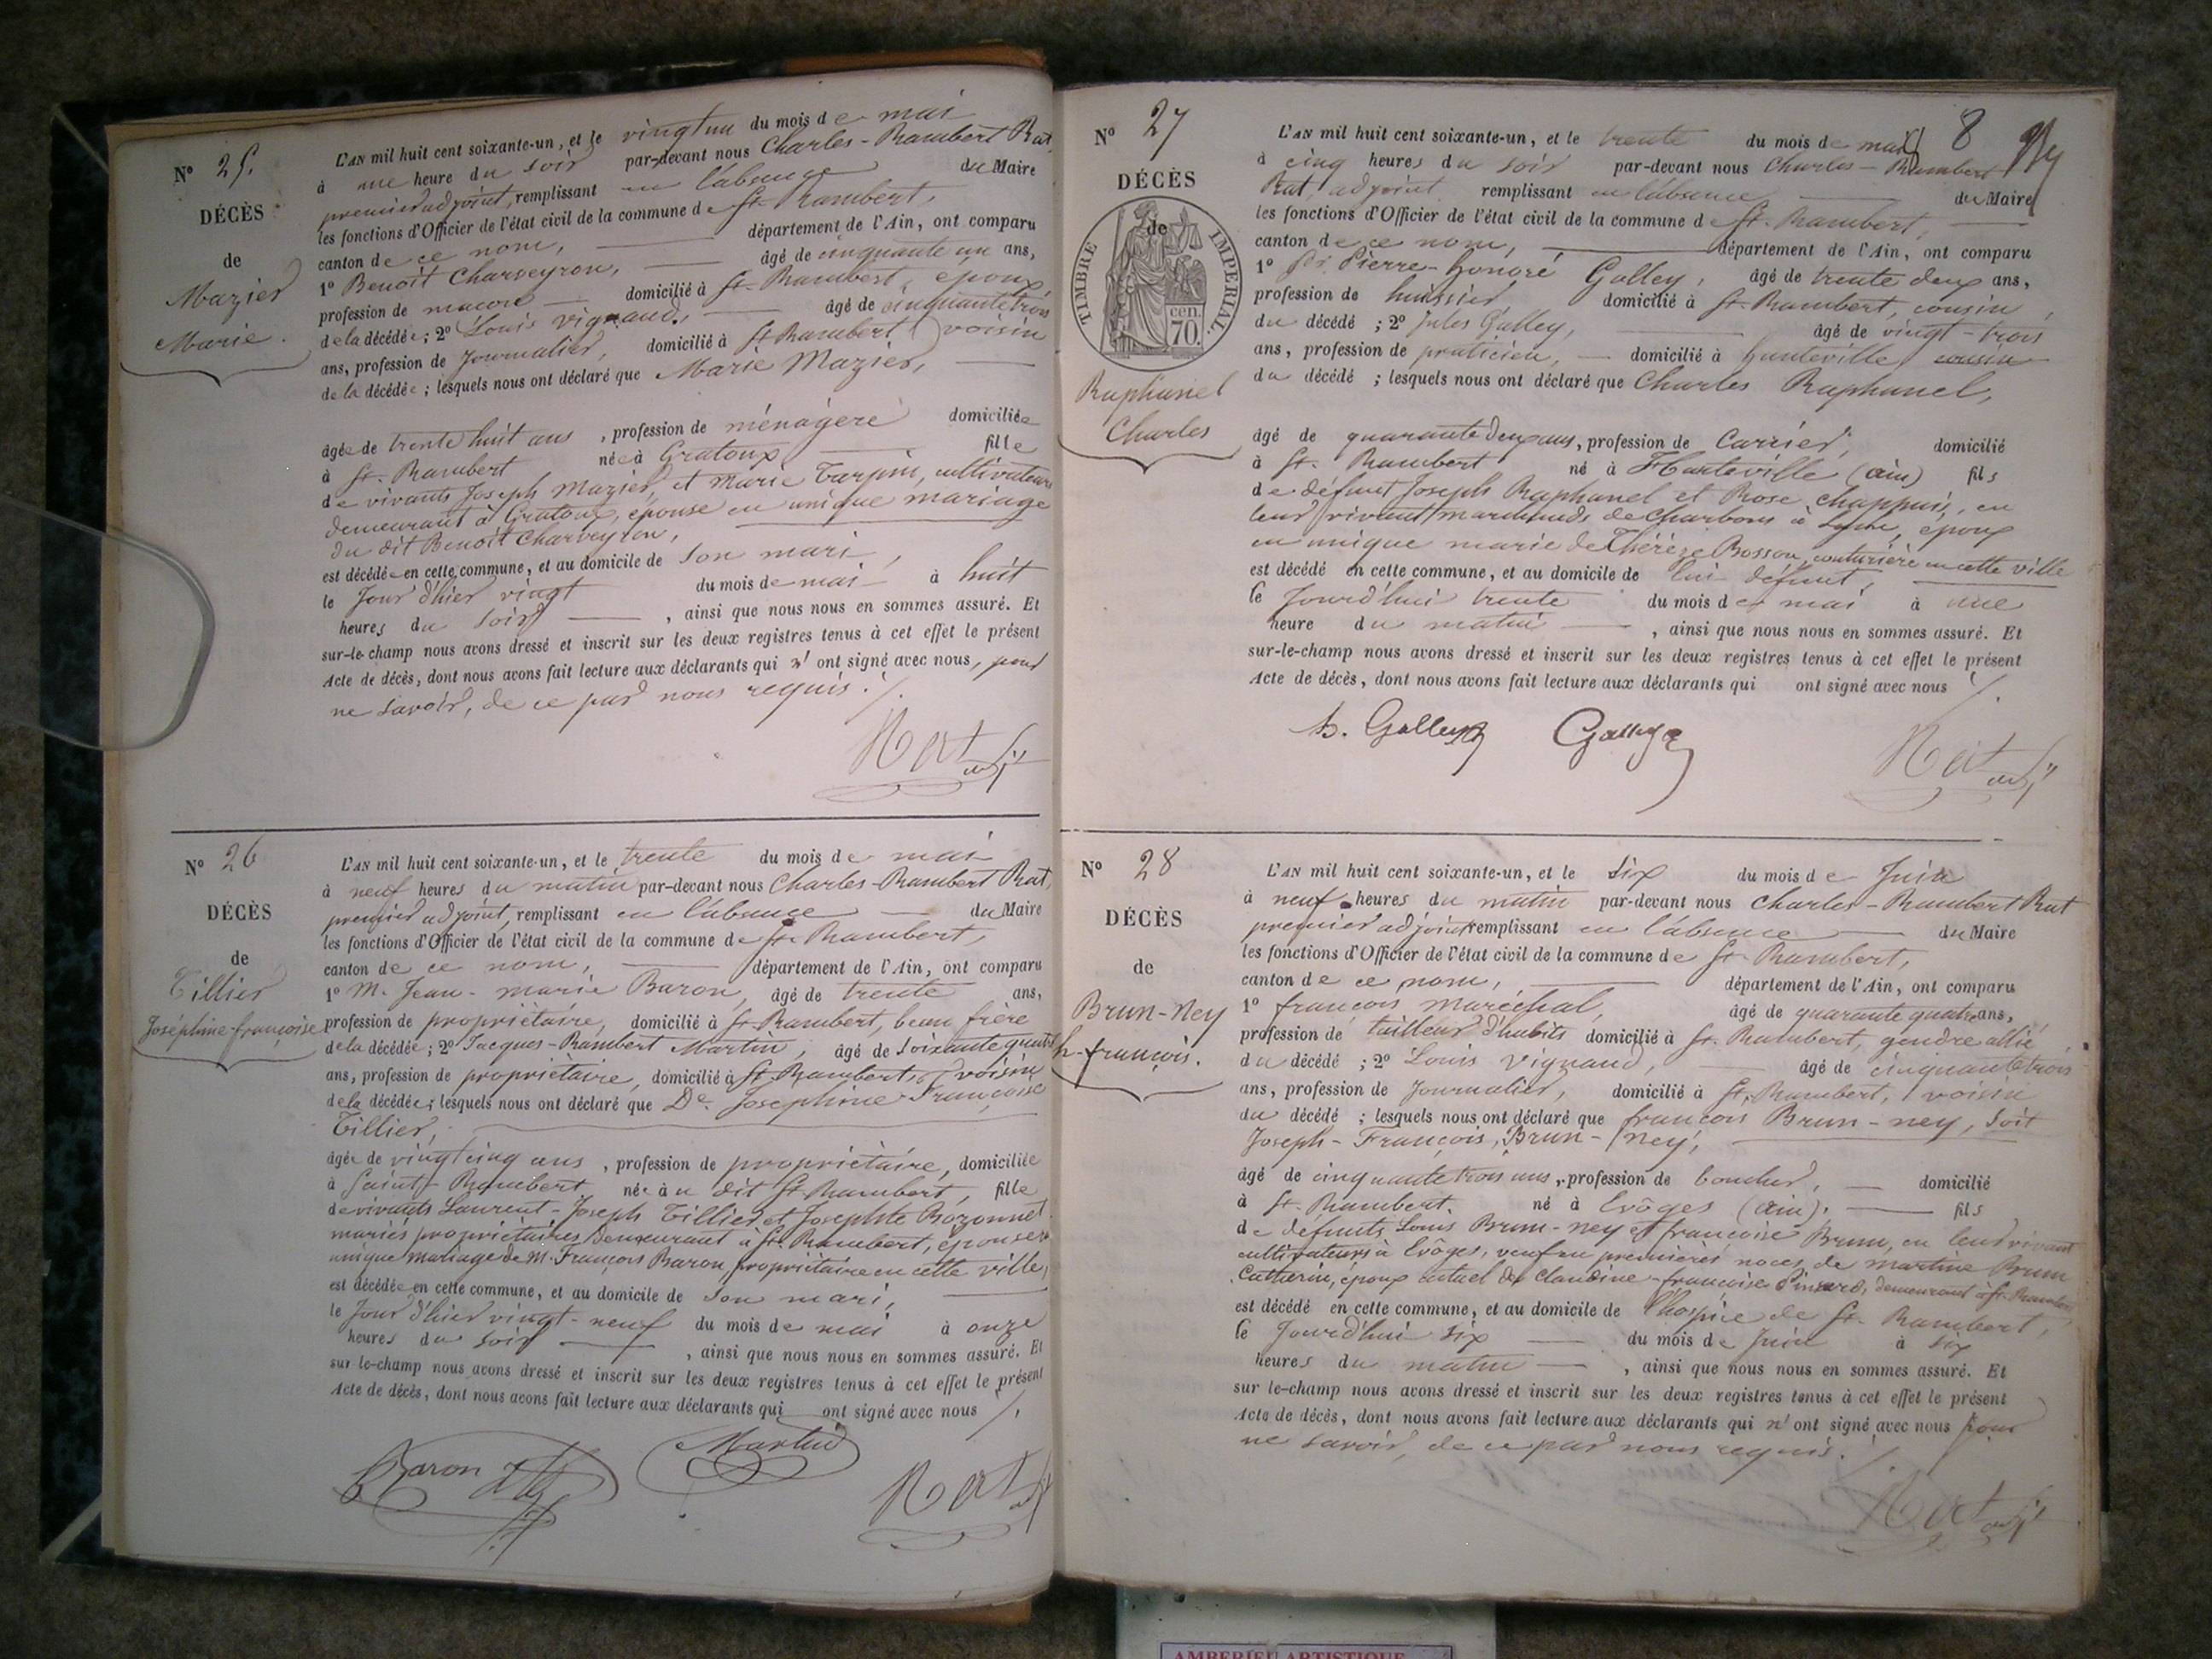 N° 25.
DÉCÈS
de
Mazier
Marie.
L'AN mil huit cent soixante-un, et le vingt un du mois de mai
à une heure du soir par-devant nous Charles-Rambert Rat,
premier adjoint, remplissant en l'absence du Maire
les fonctions d'Officier de l'état civil de la commune de St. Rambert,
canton de ce nom, département de l'Ain, ont comparu
1° Benoît Charveyron, âgé de cinquante un ans,
profession de maçon domicilié à St. Rambert, epoux
de la décédée; 2° Louis Vignaud, âgé de cinquante trois
ans, profession de Journalier, domicilié à St Rambert, voisin
de la décédée; lesquels nous ont déclaré que Marie Mazier,
âgée de trente huit ans, profession de ménagère domiciliée
à St. Rambert née à Gratoux fille
de vivants Joseph Mazier, et Marie Tarpin, cultivateurs
demeurant à Gratoux, épouse en unique mariage
du dit Benoît Charveyron,
est décédée en cette commune, et au domicile de son mari,
le Jour d'hier vingt du mois de mai à huit
heures du soir, ainsi que nous nous en sommes assuré. Et
sur-le-champ nous avons dressé et inscrit sur les deux registres tenus à cet effet le présent
Acte de décès, dont nous avons fait lecture aux déclarants qui n'ont signé avec nous, pour
ne savoir, de ce par nous requis./.
Rat adj
N° 26
DÉCÈS
de
Tillier
Joséphine-françoise
L'AN mil huit cent soixante-un, et le trente du mois de mai
à neuf heures du matin par-devant nous Charles-Rambert Rat,
premier adjoint, remplissant en l'absence du Maire
les fonctions d'Officier de l'état civil de la commune de St. Rambert,
canton de ce nom, département de l'Ain, ont comparu
1° M. Jean-marie Baron, âgé de trente ans,
profession de propriétaire, domicilié à St. Rambert, beau frère
de la décédée; 2° Jacques-Rambert Martin, âgé de soixante quatre
ans, profession de propriétaire, domicilié à St. Rambert, voisin
de la décédée; lesquels nous ont déclaré que De. Josephine Françoise
Tillier,
âgée de vingt cinq ans, profession de propriétaire, domiciliée
à Saint-Rambert née à u dit St. Rambert, fille
de vivants Laurent-Joseph Tillier et Josephte Bozonnet
mariés propriétaires demeurant à St. Rambert, épouse en
unique mariage de M. François Baron, propriétaire en cette ville,
est décédée en cette commune, et au domicile de son mari,
le Jour d'hier vingt-neuf du mois de mai à onze
heures du soir, ainsi que nous nous en sommes assuré. Et
sur le-champ nous avons dressé et inscrit sur les deux registres tenus à cet effet le présent
Acte de décès, dont nous avons fait lecture aux déclarants qui ont signé avec nous /.
Baron Martin Rat
N° 27
DÉCÈS
de
TIMBRE IMPÉRIAL.
70. cen.
Raphanel
Charles
8
L'AN mil huit cent soixante-un, et le trente du mois de mai
à cinq heures du soir par-devant nous Charles-Rambert
Rat, adjoint remplissant en l'absence du Maire
les fonctions d'Officier de l'état civil de la commune de St. Rambert,
canton de ce nom, département de l'Ain, ont comparu
1° Sr. Pierre-honoré Galley, âgé de trente deux ans,
profession de huissier domicilié à St. Rambert, cousin
du décédé; 2° Jules Galley, âgé de vingt-trois
ans, profession de praticien, domicilié à hauteville cousin
du décédé; lesquels nous ont déclaré que Charles Raphanel,
âgé de quarante deux ans, profession de Carrier, domicilié
à St. Rambert né à Hauteville (ain) fils
de défunt Joseph Raphanel et Rose Chappuis, en
leur vivant marchands de charbons à Lyon, époux
en unique marié de Thérèze Bosson, couturière en cette ville
est décédé en cette commune, et au domicile de lui défunt,
le Jourd'hui trente du mois de mai à une
heure du matin, ainsi que nous nous en sommes assuré. Et
sur-le-champ nous avons dressé et inscrit sur les deux registres tenus à cet effet le présent
Acte de décès, dont nous avons fait lecture aux déclarants qui ont signé avec nous /.
h. Galley Galley Rat adj
N° 28
DÉCÈS
de
Brun-Ney
h-françois.
L'AN mil huit cent soixante-un, et le six du mois de Juin
à neuf heures du matin par-devant nous Charles-Rambert Rat
premier adjoint remplissant en l'absence du Maire
les fonctions d'Officier de l'état civil de la commune de St. Rambert,
canton de ce nom, département de l'Ain, ont comparu
1° françois maréchal, âgé de quarante quatre ans,
profession de tailleur d'habits domicilié à St. Rambert, gendre allié
du décédé; 2° Louis Vignaud, âgé de cinquante trois
ans, profession de Journalier, domicilié à St. Rambert, voisin
du décédé; lesquels nous ont déclaré que françois Brun-ney, soit
Joseph-François, Brun-ney,
âgé de cinquante trois ans, profession de boucher, domicilié
à St. Rambert. né à Evôges (ain). fils
de défunts Louis Brun-ney et françoise Brun, en leur vivant
cultivateurs à Evôges, veuf en premières noces de martine Brun
Catherin, époux actuel de Claudine-françoise Pinard, demeurant à St. Rambert
est décédé en cette commune, et au domicile de l'hospice de St. Rambert,
le Jourd'hui six du mois de Juin à six
heures du matin, ainsi que nous nous en sommes assuré. Et
sur le-champ nous avons dressé et inscrit sur les deux registres tenus à cet effet le présent
Acte de décès, dont nous avons fait lecture aux déclarants qui n'ont signé avec nous pour
ne savoir, de ce par nous requis. /.
Rat adj
AMBERIEU ARTISTIQUE